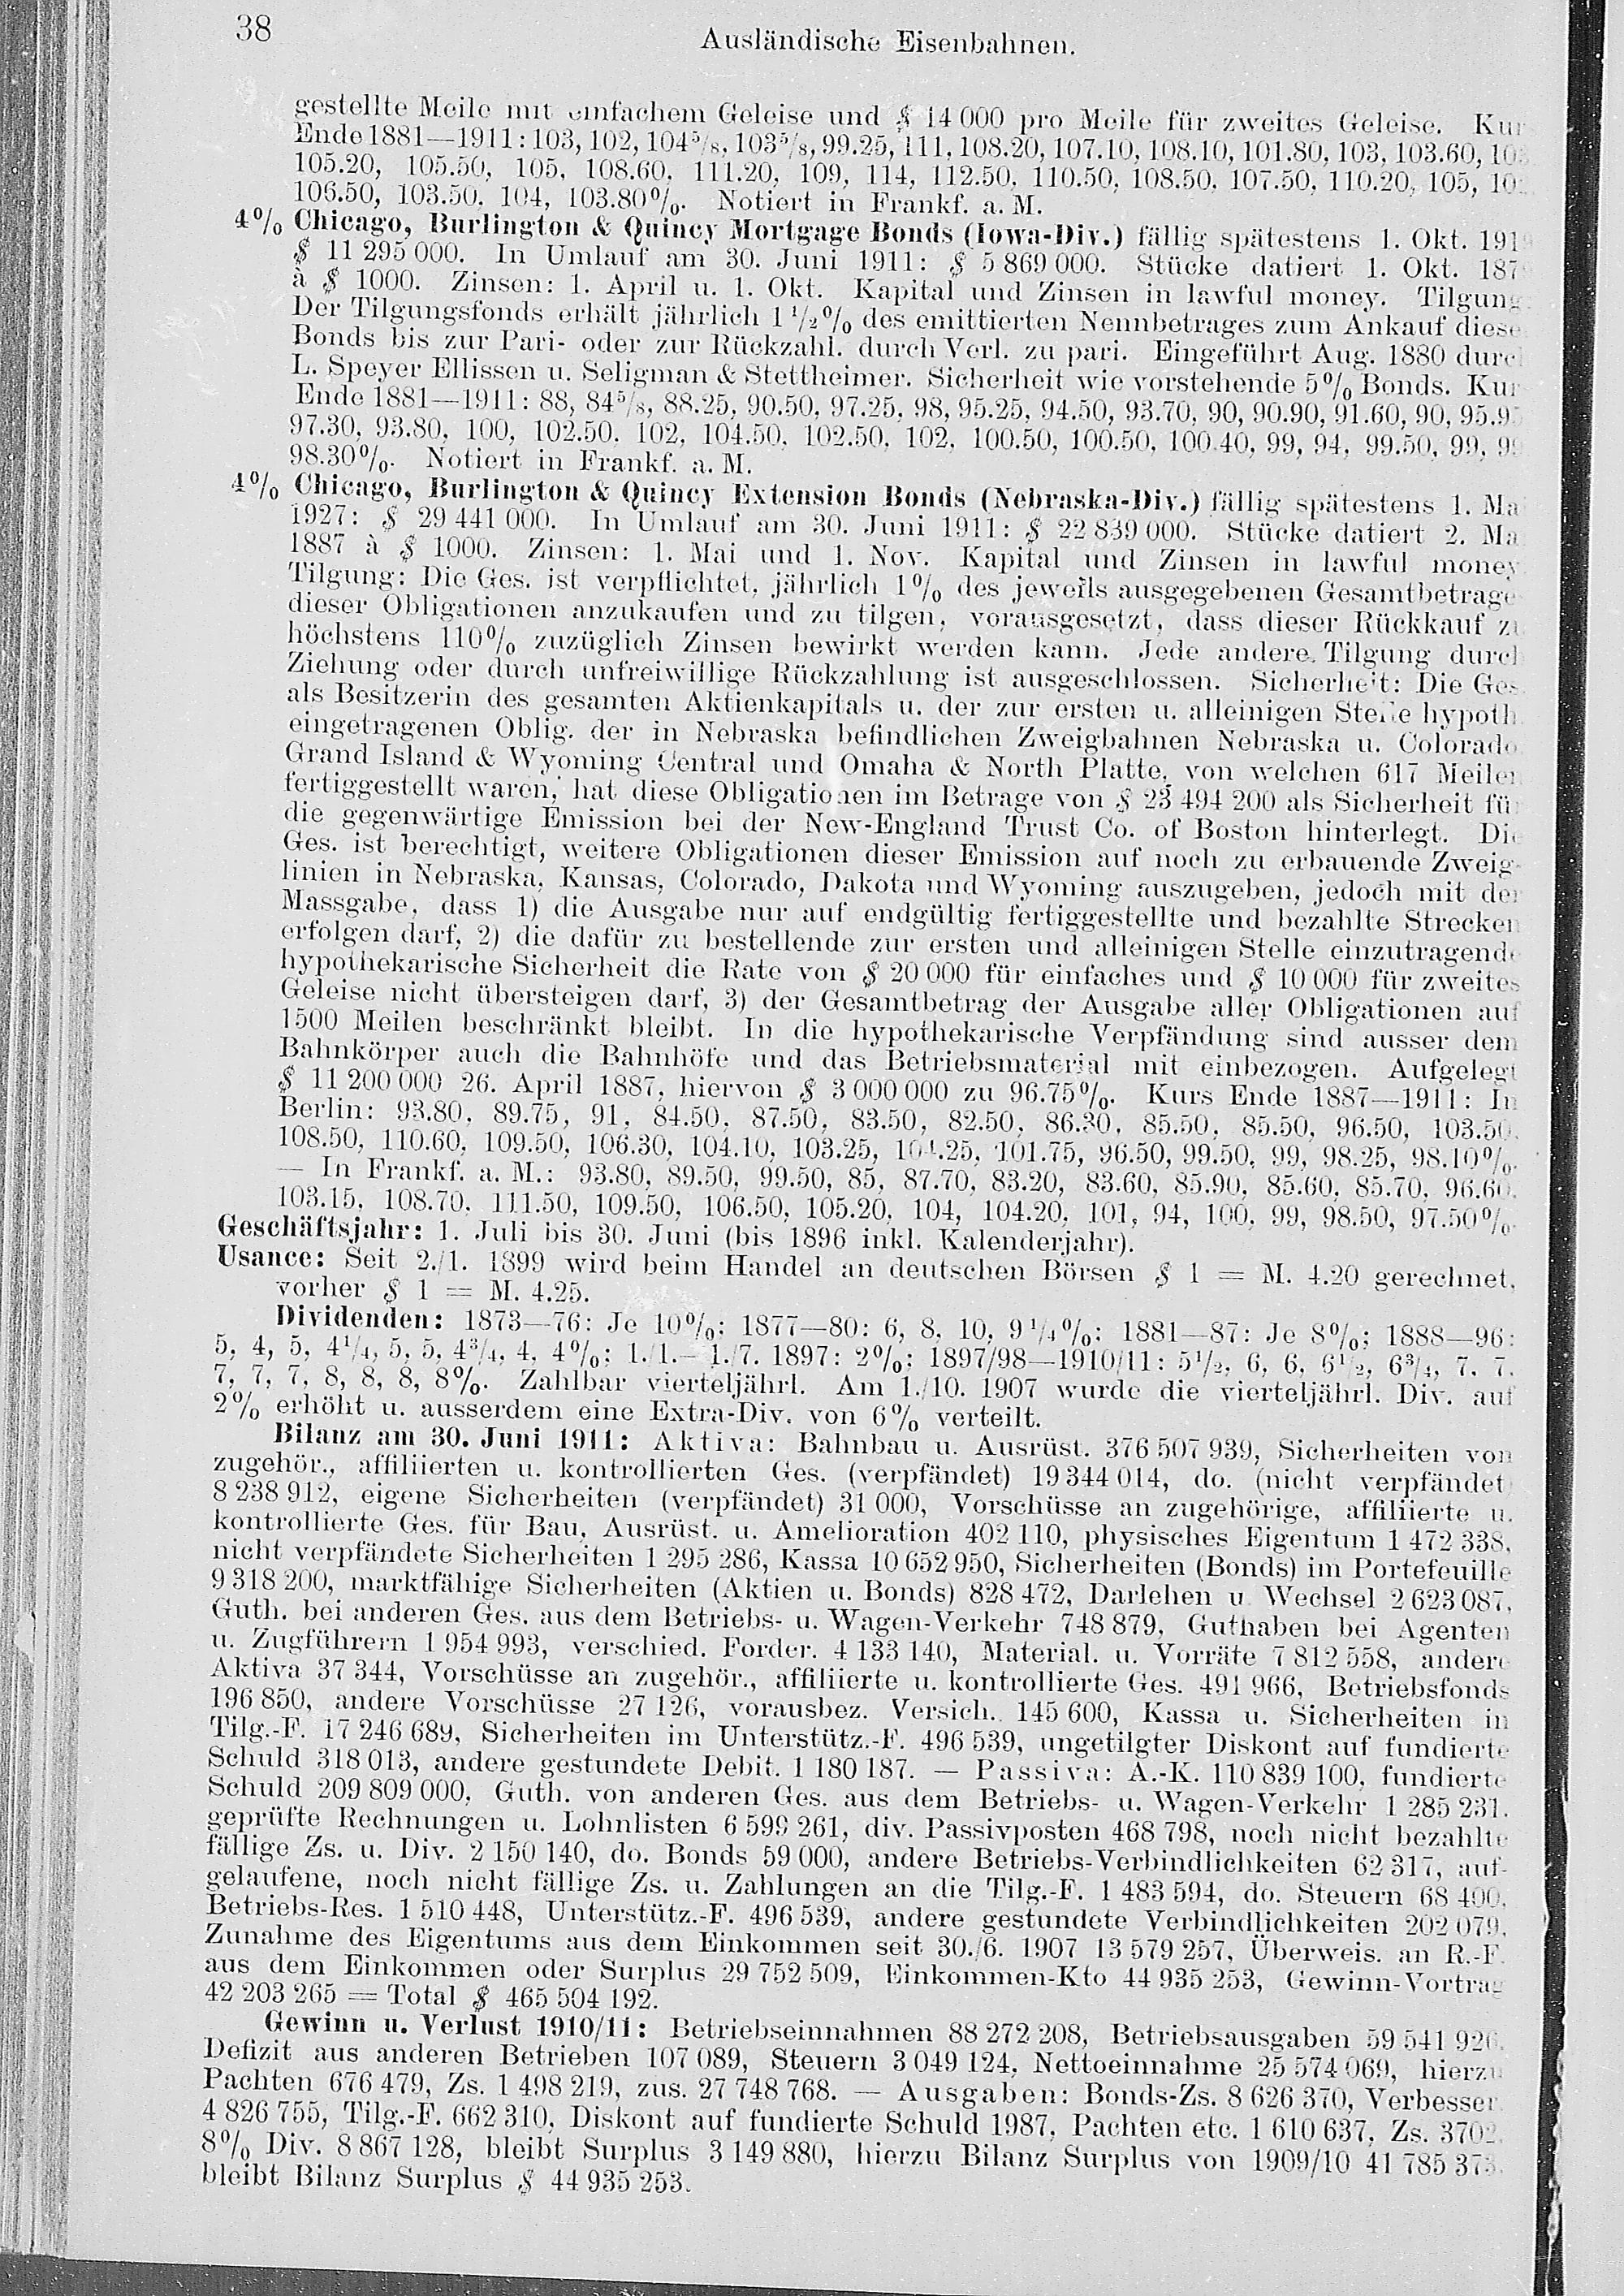 38
Ausländische Eisenbahnen.
gestellte Meile mit einfachem Geleise und $ 14 000 pro Meile für zweites Geleise.
Ende 1881—1911: 103, 102, 104⁵/₈, 103⁵/₈, 99.25, 111, 108.20, 107.10, 108.10, 101.80, 103, 103.60,
105.20, 105.50, 105, 108.60, 111.20, 109, 114, 112.50, 110.50, 108.50, 107.50, 110.20, 105,
106.50, 103.50, 104, 103.80%. Notiert in Frankf. a. M.
4% Chicago, Burlington & Quincy Mortgage Bonds (Iowa-Div.) fällig spätestens 1. Okt.
$ 11 295 000. In Umlauf am 30. Juni 1911: $ 5 869 000. Stücke datiert 1. Okt.
à $ 1000. Zinsen: 1. April u. 1. Okt. Kapital und Zinsen in lawful money. Tilgung
Der Tilgungsfonds erhält jährlich 1¹/₂% des emittierten Nennbetrages zum Ankauf diese
Bonds bis zur Pari- oder zur Rückzahl. durch Verl. zu pari. Eingeführt Aug. 1880 durc
L. Speyer Ellissen u. Seligman & Stettheimer. Sicherheit wie vorstehende 5% Bonds. Kur
Ende 1881—1911: 88, 84⁵/₈, 88.25, 90.50, 97.25, 98, 95.25, 94.50, 93.70, 90, 90.90, 91.60, 90,
97.30, 93.80, 100, 102.50, 102, 104.50, 102.50, 102, 100.50, 100.50, 100.40, 99, 94, 99.50, 99,
98.30%. Notiert in Frankf. a. M.
4% Chicago, Burlington & Quincy Extension Bonds (Nebraska-Div.) fällig spätestens 1. Ma
1927: $ 29 441 000. In Umlauf am 30. Juni 1911: $ 22 839 000. Stücke datiert 2. Ma
1887 à $ 1000. Zinsen: 1. Mai und 1. Nov. Kapital und Zinsen in lawful money
Tilgung: Die Ges. ist verpflichtet, jährlich 1% des jeweils ausgegebenen Gesamtbetrage
dieser Obligationen anzukaufen und zu tilgen, vorausgesetzt, dass dieser Rückkauf z
höchstens 110% zuzüglich Zinsen bewirkt werden kann. Jede andere Tilgung durch
Ziehung oder durch unfreiwillige Rückzahlung ist ausgeschlossen. Sicherheit: Die Ges.
als Besitzerin des gesamten Aktienkapitals u. der zur ersten u. alleinigen Stelle hypoth.
eingetragenen Oblig. der in Nebraska befindlichen Zweigbahnen Nebraska u. Colorado
Grand Island & Wyoming Central und Omaha & North Platte, von welchen 617 Meilen
fertiggestellt waren, hat diese Obligationen im Betrage von $ 23 494 200 als Sicherheit für
die gegenwärtige Emission bei der New-England Trust Co. of Boston hinterlegt. Die
Ges. ist berechtigt, weitere Obligationen dieser Emission auf noch zu erbauende Zweig-
linien in Nebraska, Kansas, Colorado, Dakota und Wyoming auszugeben, jedoch mit der
Massgabe, dass 1) die Ausgabe nur auf endgültig fertiggestellte und bezahlte Strecken
erfolgen darf, 2) die dafür zu bestellende zur ersten und alleinigen Stelle einzutragende
hypothekarische Sicherheit die Rate von $ 20 000 für einfaches und $ 10 000 für zweites
Geleise nicht übersteigen darf, 3) der Gesamtbetrag der Ausgabe aller Obligationen auf
1500 Meilen beschränkt bleibt. In die hypothekarische Verpfändung sind ausser dem
Bahnkörper auch die Bahnhöfe und das Betriebsmaterial mit einbezogen. Aufgelegt
$ 11 200 000 26. April 1887, hiervon $ 3 000 000 zu 96.75%. Kurs Ende 1887—1911: In
Berlin: 93.80, 89.75, 91, 84.50, 87.50, 83.50, 82.50, 86.30, 85.50, 85.50, 96.50, 103.50,
108.50, 110.60, 109.50, 106.30, 104.10, 103.25, 104.25, 101.75, 96.50, 99.50, 99, 98.25, 98.10%.
— In Frankf. a. M.: 93.80, 89.50, 99.50, 85, 87.70, 83.20, 83.60, 85.90, 85.60, 85.70, 96.60,
103.15, 108.70, 111.50, 109.50, 106.50, 105.20, 104, 104.20, 101, 94, 100, 99, 98.50, 97.50%.
Geschäftsjahr: 1. Juli bis 30. Juni (bis 1896 inkl. Kalenderjahr).
Usance: Seit 2./1. 1899 wird beim Handel an deutschen Börsen $ 1 = M. 4.20 gerechnet,
vorher $ 1 = M. 4.25.
Dividenden: 1873—76: Je 10%; 1877—80: 6, 8, 10, 9¹/₄%; 1881—87: Je 8%; 1888—96:
5, 4, 5, 4¹/₄, 5, 5, 4³/₄, 4, 4%; 1./1.—1./7. 1897: 2%; 1897/98—1910/11: 5¹/₂, 6, 6, 6¹/₂, 6³/₄, 7, 7,
7, 7, 7, 8, 8, 8, 8%. Zahlbar vierteljährl. Am 1./10. 1907 wurde die vierteljährl. Div. auf
2% erhöht u. ausserdem eine Extra-Div. von 6% verteilt.
Bilanz am 30. Juni 1911: Aktiva: Bahnbau u. Ausrüst. 376 507 939, Sicherheiten von
zugehör., affiliierten u. kontrollierten Ges. (verpfändet) 19 344 014, do. (nicht verpfändet)
8 238 912, eigene Sicherheiten (verpfändet) 31 000, Vorschüsse an zugehörige, affiliierte u.
kontrollierte Ges. für Bau, Ausrüst. u. Amelioration 402 110, physisches Eigentum 1 472 338,
nicht verpfändete Sicherheiten 1 295 286, Kassa 10 652 950, Sicherheiten (Bonds) im Portefeuille
9 318 200, marktfähige Sicherheiten (Aktien u. Bonds) 828 472, Darlehen u. Wechsel 2 623 087,
Guth. bei anderen Ges. aus dem Betriebs- u. Wagen-Verkehr 748 879, Guthaben bei Agenten
u. Zugführern 1 954 993, verschied. Forder. 4 133 140, Material. u. Vorräte 7 812 558, andere
Aktiva 37 344, Vorschüsse an zugehör., affiliierte u. kontrollierte Ges. 491 966, Betriebsfonds
196 850, andere Vorschüsse 27 126, vorausbez. Versich. 145 600, Kassa u. Sicherheiten in
Tilg.-F. 17 246 689, Sicherheiten im Unterstütz.-F. 496 539, ungetilgter Diskont auf fundierte
Schuld 318 013, andere gestundete Debit. 1 180 187. — Passiva: A.-K. 110 839 100, fundierte
Schuld 209 809 000, Guth. von anderen Ges. aus dem Betriebs- u. Wagen-Verkehr 1 285 231,
geprüfte Rechnungen u. Lohnlisten 6 599 261, div. Passivposten 468 798, noch nicht bezahlte
fällige Zs. u. Div. 2 150 140, do. Bonds 59 000, andere Betriebs-Verbindlichkeiten 62 317, auf-
gelaufene, noch nicht fällige Zs. u. Zahlungen an die Tilg.-F. 1 483 594, do. Steuern 68 400,
Betriebs-Res. 1 510 448, Unterstütz.-F. 496 539, andere gestundete Verbindlichkeiten 202 079,
Zunahme des Eigentums aus dem Einkommen seit 30./6. 1907 13 579 257, Überweis. an R.-F.
aus dem Einkommen oder Surplus 29 752 509, Einkommen-Kto 44 935 253, Gewinn-Vortrag
42 203 265 = Total $ 465 504 192.
Gewinn u. Verlust 1910/11: Betriebseinnahmen 88 272 208, Betriebsausgaben 59 541 926,
Defizit aus anderen Betrieben 107 089, Steuern 3 049 124, Nettoeinnahme 25 574 069, hierzu
Pachten 676 479, Zs. 1 498 219, zus. 27 748 768. — Ausgaben: Bonds-Zs. 8 626 370, Verbesser.
4 826 755, Tilg.-F. 662 310, Diskont auf fundierte Schuld 1987, Pachten etc. 1 610 637, Zs. 3702,
8% Div. 8 867 128, bleibt Surplus 3 149 880, hierzu Bilanz Surplus von 1909/10 41 785 373,
bleibt Bilanz Surplus $ 44 935 253.